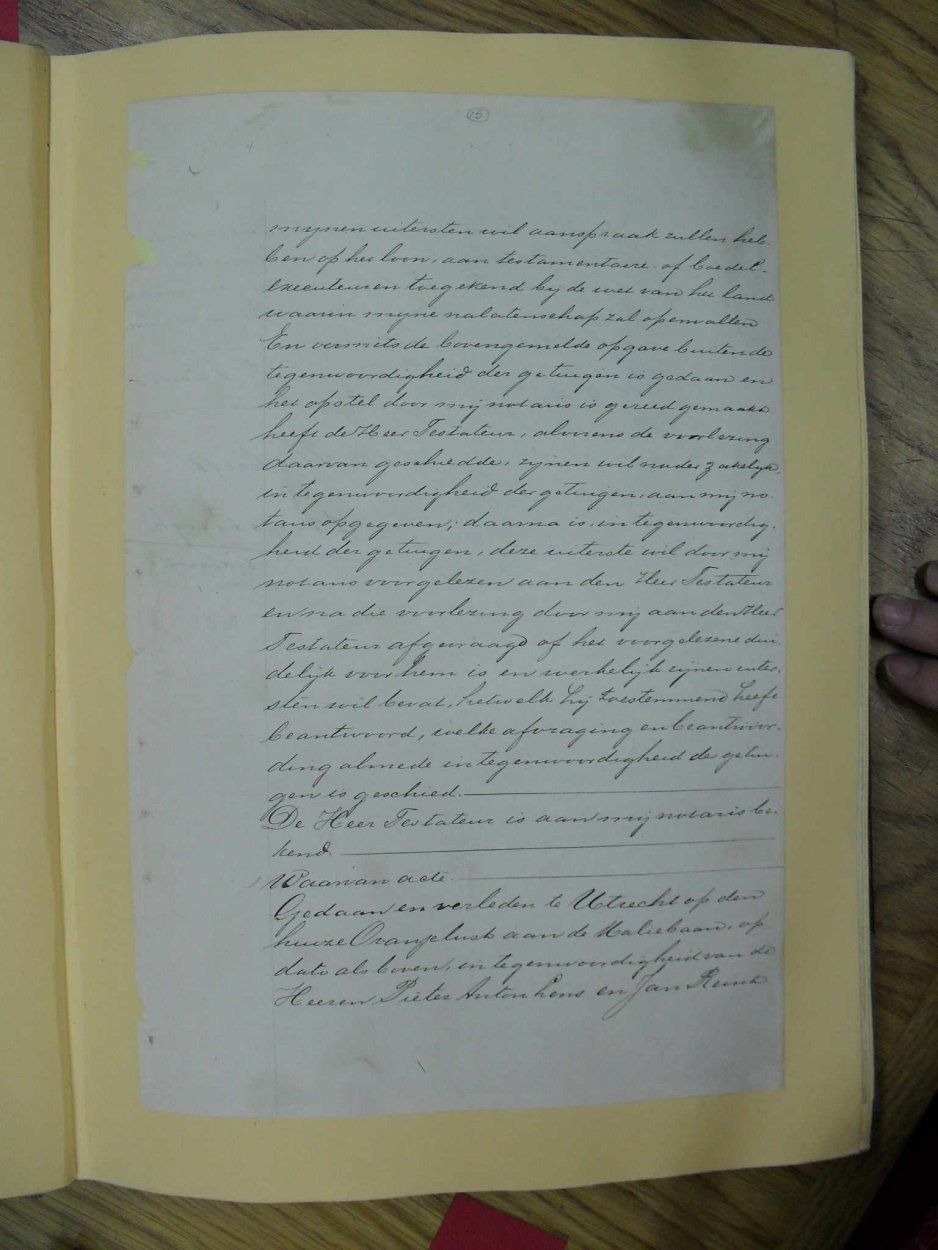 15
mynen uitersten wil aanspraak zullen heb-
ben op het loon, aan testamentaire of boedel-
executeuren toegekend bij de wet van het land
waarin myne nalatenschap zal openvallen
En vermits de bovengemelde opgave buiten de
tegenwoordigheid der getuigen is gedaan en
het opstel door mij notaris is gereed gemaakt
heeft de Heer Testateur, alvorens de voorlezing
daarvan geschiedde, zijnen wil nader zakelijk,
in tegenwoordigheid der getuigen, aan mij no-
taris opgegeven; daarna is, in tegenwoordig-
heid der getuigen, deze uiterste wil door mij
notaris voorgelezen aan den Heer Testateur
en na die voorlezing door mij aan den Heer
Testateur afgevraagd of het voorgelezene dui-
delijk voor hem is en werkelijk zijnen uiter-
sten wil bevat, hetwelk hij toestemmend heeft
beantwoord, welke afvraging en beantwoor-
ding almede in tegenwoordigheid de getui-
gen is geschied.
De Heer Testateur is aan mij notaris be-
kend.
Waarvan acte
Gedaan en verleden te Utrecht op den
huize Oranjelust aan de Maliebaan, op
dato als boven, in tegenwoordigheid van de
Heeren Pieter Anton en Jan